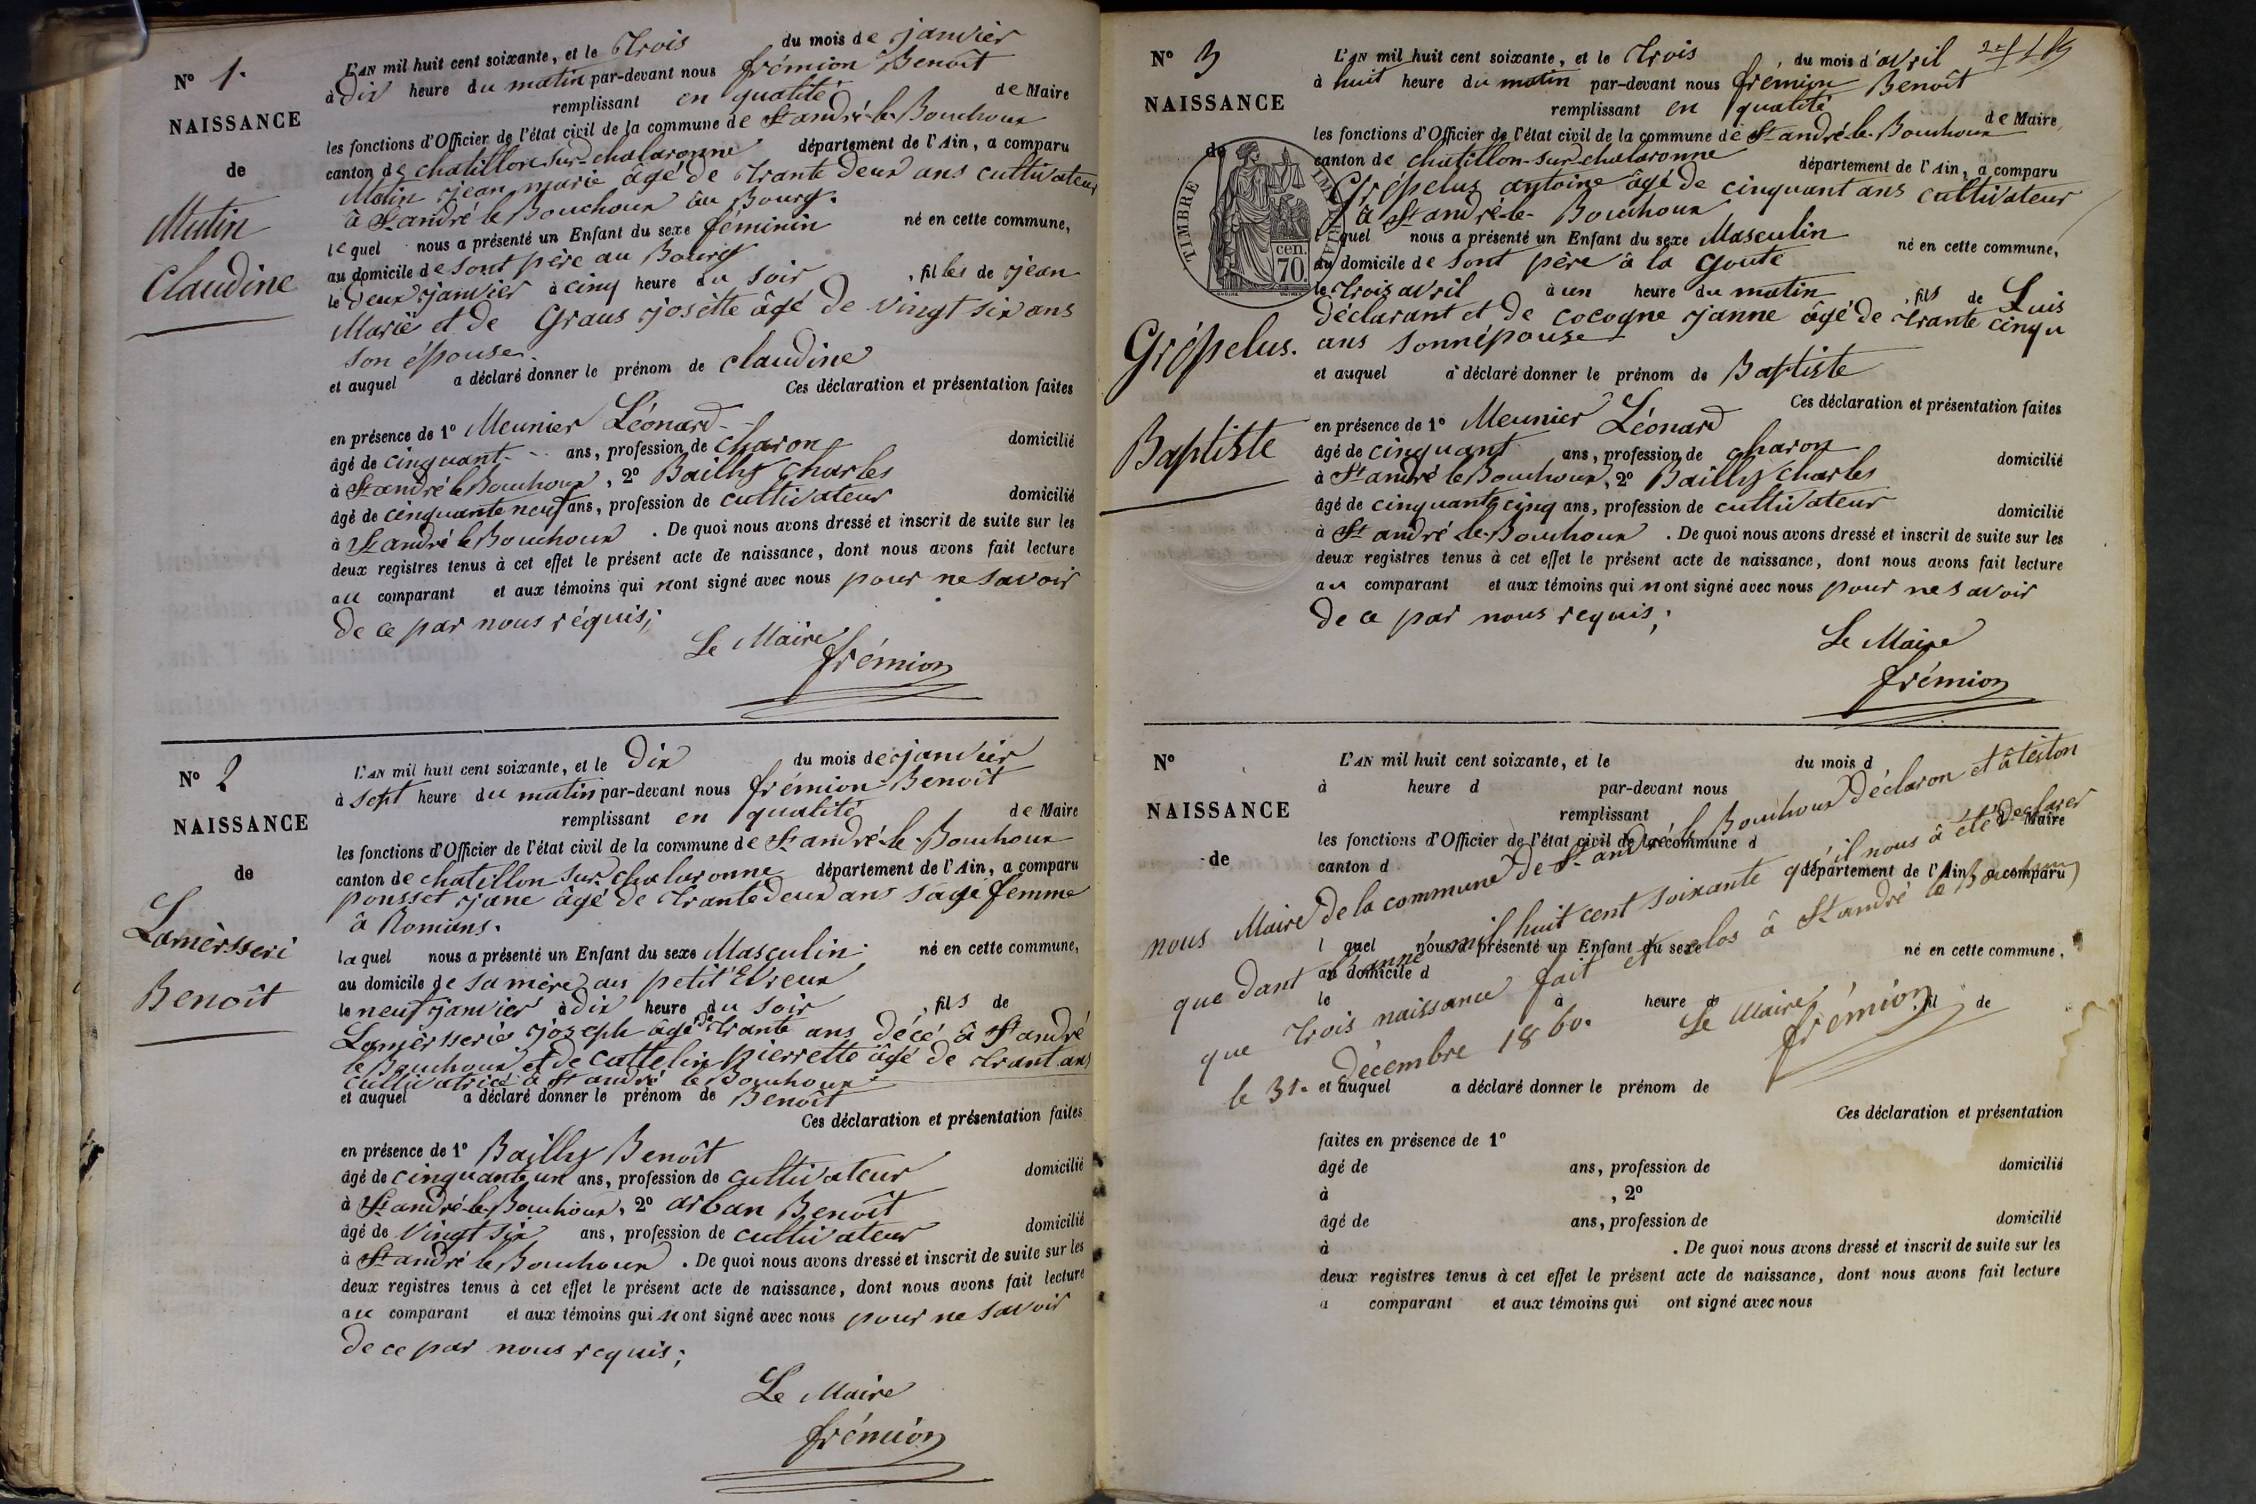 N° 1.
NAISSANCE
de
Mutin
Claudine
L'AN mil huit cent soixante, et le trois du mois de janvier
à dix heure du matin par-devant nous frémion Benoît
remplissant en qualité de Maire
les fonctions d'Officier de l'état civil de la commune de St andré-le-Bouchoux
canton de chatillon-sur-chalaronne département de l'Ain, a comparu
Mutin jean marie âgé de trante deux ans cultivateur
à St andré le Bouchoux au Bourg.
lequel nous a présenté un Enfant du sexe féminin né en cette commune,
au domicile de sont père au Bourg
le Deux janvier à cinq heure du soir, filles de jean
Marie et de Graus josette âgé de vingt six ans
son épouse.
et auquel a déclaré donner le prénom de claudine
Ces déclaration et présentation faites
en présence de 1° Meunier Léonard
âgé de cinquant ans, profession de charon domicilié
à St andré le Bouchoux, 2° Bailly charles
âgé de cinquante neuf ans, profession de cultivateur domicilié
à St andré le Bouchoux. De quoi nous avons dressé et inscrit de suite sur les
deux registres tenus à cet effet le présent acte de naissance, dont nous avons fait lecture
au comparant et aux témoins qui n ont signé avec nous pour ne savoir
de ce par nous réquis;
Le Maire
frémion
N° 2
NAISSANCE
de
Lamèrsseri
Benoît
L'AN mil huit cent soixante, et le Dix du mois de janvier
à sept heure du matin par-devant nous frémion Benoît
remplissant en qualité de Maire
les fonctions d'Officier de l'état civil de la commune de St andré-le-Bouchoux
canton de chatillon sur chalaronne département de l'Ain, a comparu
pousset jane âgé de trante deux ans sage femme
à Romans.
laquel nous a présenté un Enfant du sexe Masculin né en cette commune,
au domicile de sa mère au petit Evreux
le neuf janvier à dix heure du soir, fils de
Lamèrsserie joseph âgé de trante ans décé à St andré
le Bouchoux et de Cattelin pierrette âgé de trant ans
cultivatrice à St andré le Bouchoux
et auquel a déclaré donner le prénom de Benoît
Ces déclaration et présentation faites
en présence de 1° Bailly Benoît
âgé de cinquante un ans, profession de cultivateur domicilié
à St andré-le-Bouchoux, 2° arban Benoît
âgé de vingt six ans, profession de cultivateur domicilié
à St andré le Bouchoux. De quoi nous avons dressé et inscrit de suite sur les
deux registres tenus à cet effet le présent acte de naissance, dont nous avons fait lecture
au comparant et aux témoins qui n ont signé avec nous pour ne savoir
de ce par nous requis;
Le Maire
frémion
N° 3
NAISSANCE
de
TIMBRE
cen.
70
Grépelus.
Baptiste
L'AN mil huit cent soixante, et le trois, du mois d'avril
à huit heure du matin par-devant nous frémion Benoît
remplissant en qualité de Maire
les fonctions d'Officier de l'état civil de la commune de St andré-le-Bouchoux
canton de chatillon-sur-chalaronne département de l'Ain, a comparu
Grépelus antoine âgé de cinquant ans cultivateur
à St andré-le-Bouchoux
l quel nous a présenté un Enfant du sexe Masculin né en cette commune,
au domicile de sont père à la Goute
le trois avril à un heure du matin, fils de Luis
déclarant et de cocogne janne âgé de trante cinqu
ans sonnépouse
et auquel a déclaré donner le prénom de Baptiste
Ces déclaration et présentation faites
en présence de 1° Meunier Léonard
âgé de cinquant ans, profession de charon domicilié
à St andré le Bouchoux, 2° Bailly Charles
âgé de cinquante cinq ans, profession de cultivateur domicilié
à St andré-le-Bouchoux. De quoi nous avons dressé et inscrit de suite sur les
deux registres tenus à cet effet le présent acte de naissance, dont nous avons fait lecture
au comparant et aux témoins qui n ont signé avec nous pour ne savoir
de ce par nous requis;
Le Maire
frémion
N°
NAISSANCE
de
L'AN mil huit cent soixante, et le du mois d
à heure d par-devant nous
remplissant d Maire
les fonctions d'Officier de l'état civil de la commune d
canton d département de l'Ain, a comparu
l quel nous a présenté un Enfant du sexe né en cette commune,
au domicile d
le à heure d, fil de
nous Maire de la commune de St andré le Bouchoux déclaron et âteston
que dant l'année mil huit cent soixante qu'il nous à été déclarer
que trois naissance fait et clos à St andré le Bouchoux
le 31. décembre 1860. Le Maire
frémion
et auquel a déclaré donner le prénom de
Ces déclaration et présentation
faites en présence de 1°
âgé de ans, profession de domicilié
à, 2°
âgé de ans, profession de domicilié
à. De quoi nous avons dressé et inscrit de suite sur les
deux registres tenus à cet effet le présent acte de naissance, dont nous avons fait lecture
a comparant et aux témoins qui ont signé avec nous